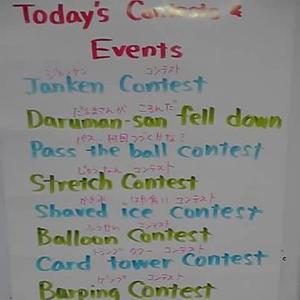 Today's Contests &
Events
ジャンケン コンテスト
Janken Contest
だるまさんが ころんだ
Daruman-san fell down
パス 何回つづくかな?
Pass the ball contest
じゅうなん コンテスト
Stretch Contest
かき氷 はや食い コンテスト
Shaved ice contest
ふうせん コンテスト
Balloon Contest
トランプ タワー コンテスト
Card tower Contest
ゲップ コンテスト
Barping Contest